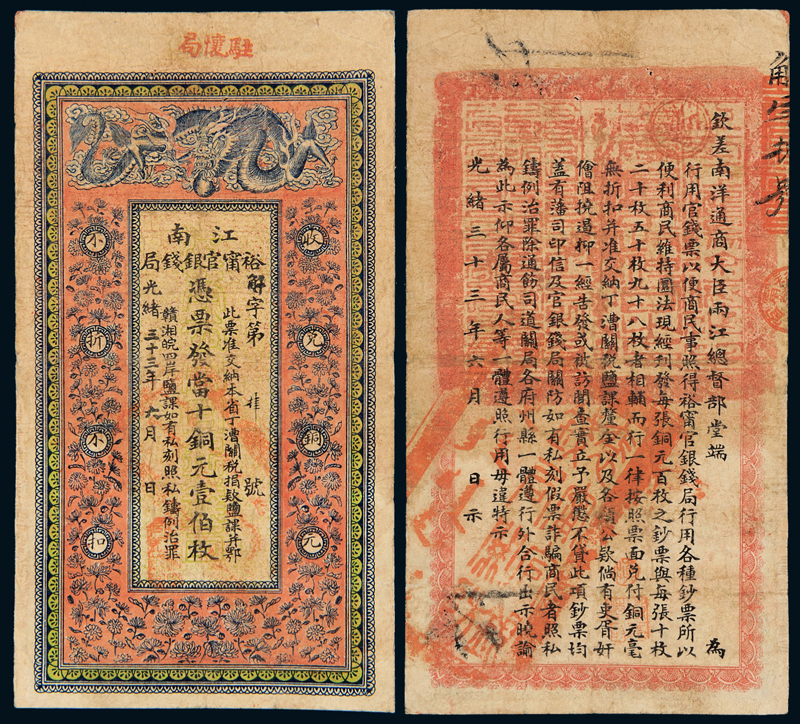 局懷駐
江南
裕甯官銀錢局
解字第 拌 號
此票准交納本省丁漕關稅捐款鹽課并鄂
憑票發當十銅元壹佰枚
贛湘皖四岸鹽課如有私刻照私鑄例治罪
光緒三十三年六月 日
收兌銅元
不折不扣
欽差南洋通商大臣兩江總督部堂端 為
行用官錢票以便商民事照得裕甯官銀錢局行用各種鈔票所以
便利商民維持圜法現經刊發每張銅元百枚之鈔票與每張十枚
二十枚五十枚九十八枚者相輔而行一律按照票面兌付銅元毫
無折扣并准交納丁漕關稅鹽課釐金以及各項公款倘有吏胥奸
儈阻撓遏抑一經告發或被訪聞查實立予嚴懲不貸此項鈔票均
蓋有藩司印信及官銀錢局關防如有私刻假票詐騙商民者照私
鑄例治罪除通飭司道關局各府州縣一體遵行外合行出示曉諭
為此示仰各屬商民人等一體遵照行用毋違特示
光緒三十三年六月 日示